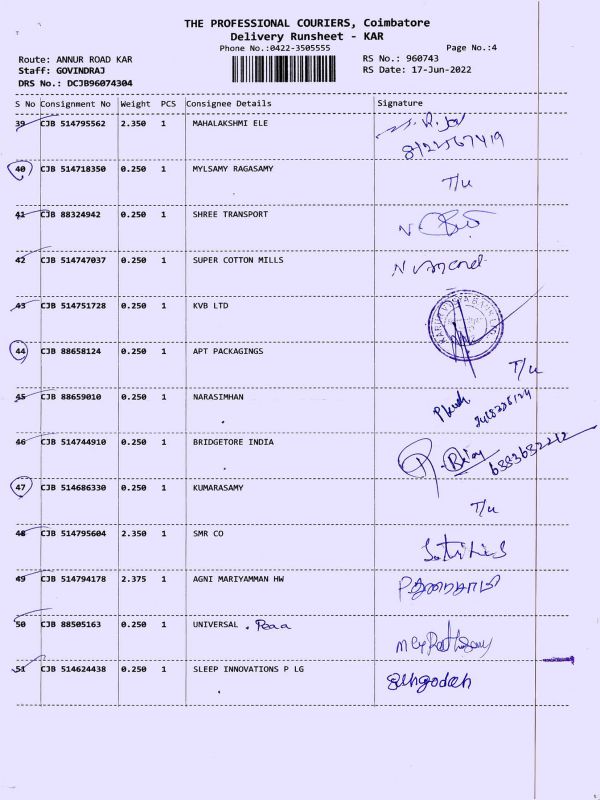 THE PROFESSIONAL COURIERS, Coimbatore
Delivery Runsheet - KAR
Phone No.:0422-3505555
Page No.:4
Route: ANNUR ROAD KAR
RS No.: 960743
Staff: GOVINDRAJ
RS Date: 17-Jun-2022
DRS No.: DCJB96074304
S No Consignment No Weight PCS Consignee Details Signature
39 CJB 514795562 2.350 1 MAHALAKSHMI ELE
40 CJB 514718350 0.250 1 MYLSAMY RAGASAMY
T/u
41 CJB 88324942 0.250 1 SHREE TRANSPORT
42 CJB 514747037 0.250 1 SUPER COTTON MILLS
43 CJB 514751728 0.250 1 KVB LTD
44 CJB 88658124 0.250 1 APT PACKAGINGS
T/u
45 CJB 88659010 0.250 1 NARASIMHAN
46 CJB 514744910 0.250 1 BRIDGETORE INDIA
47 CJB 514686330 0.250 1 KUMARASAMY
T/u
48 CJB 514795604 2.350 1 SMR CO
49 CJB 514794178 2.375 1 AGNI MARIYAMMAN HW
50 CJB 88505163 0.250 1 UNIVERSAL
51 CJB 514624438 0.250 1 SLEEP INNOVATIONS P LG